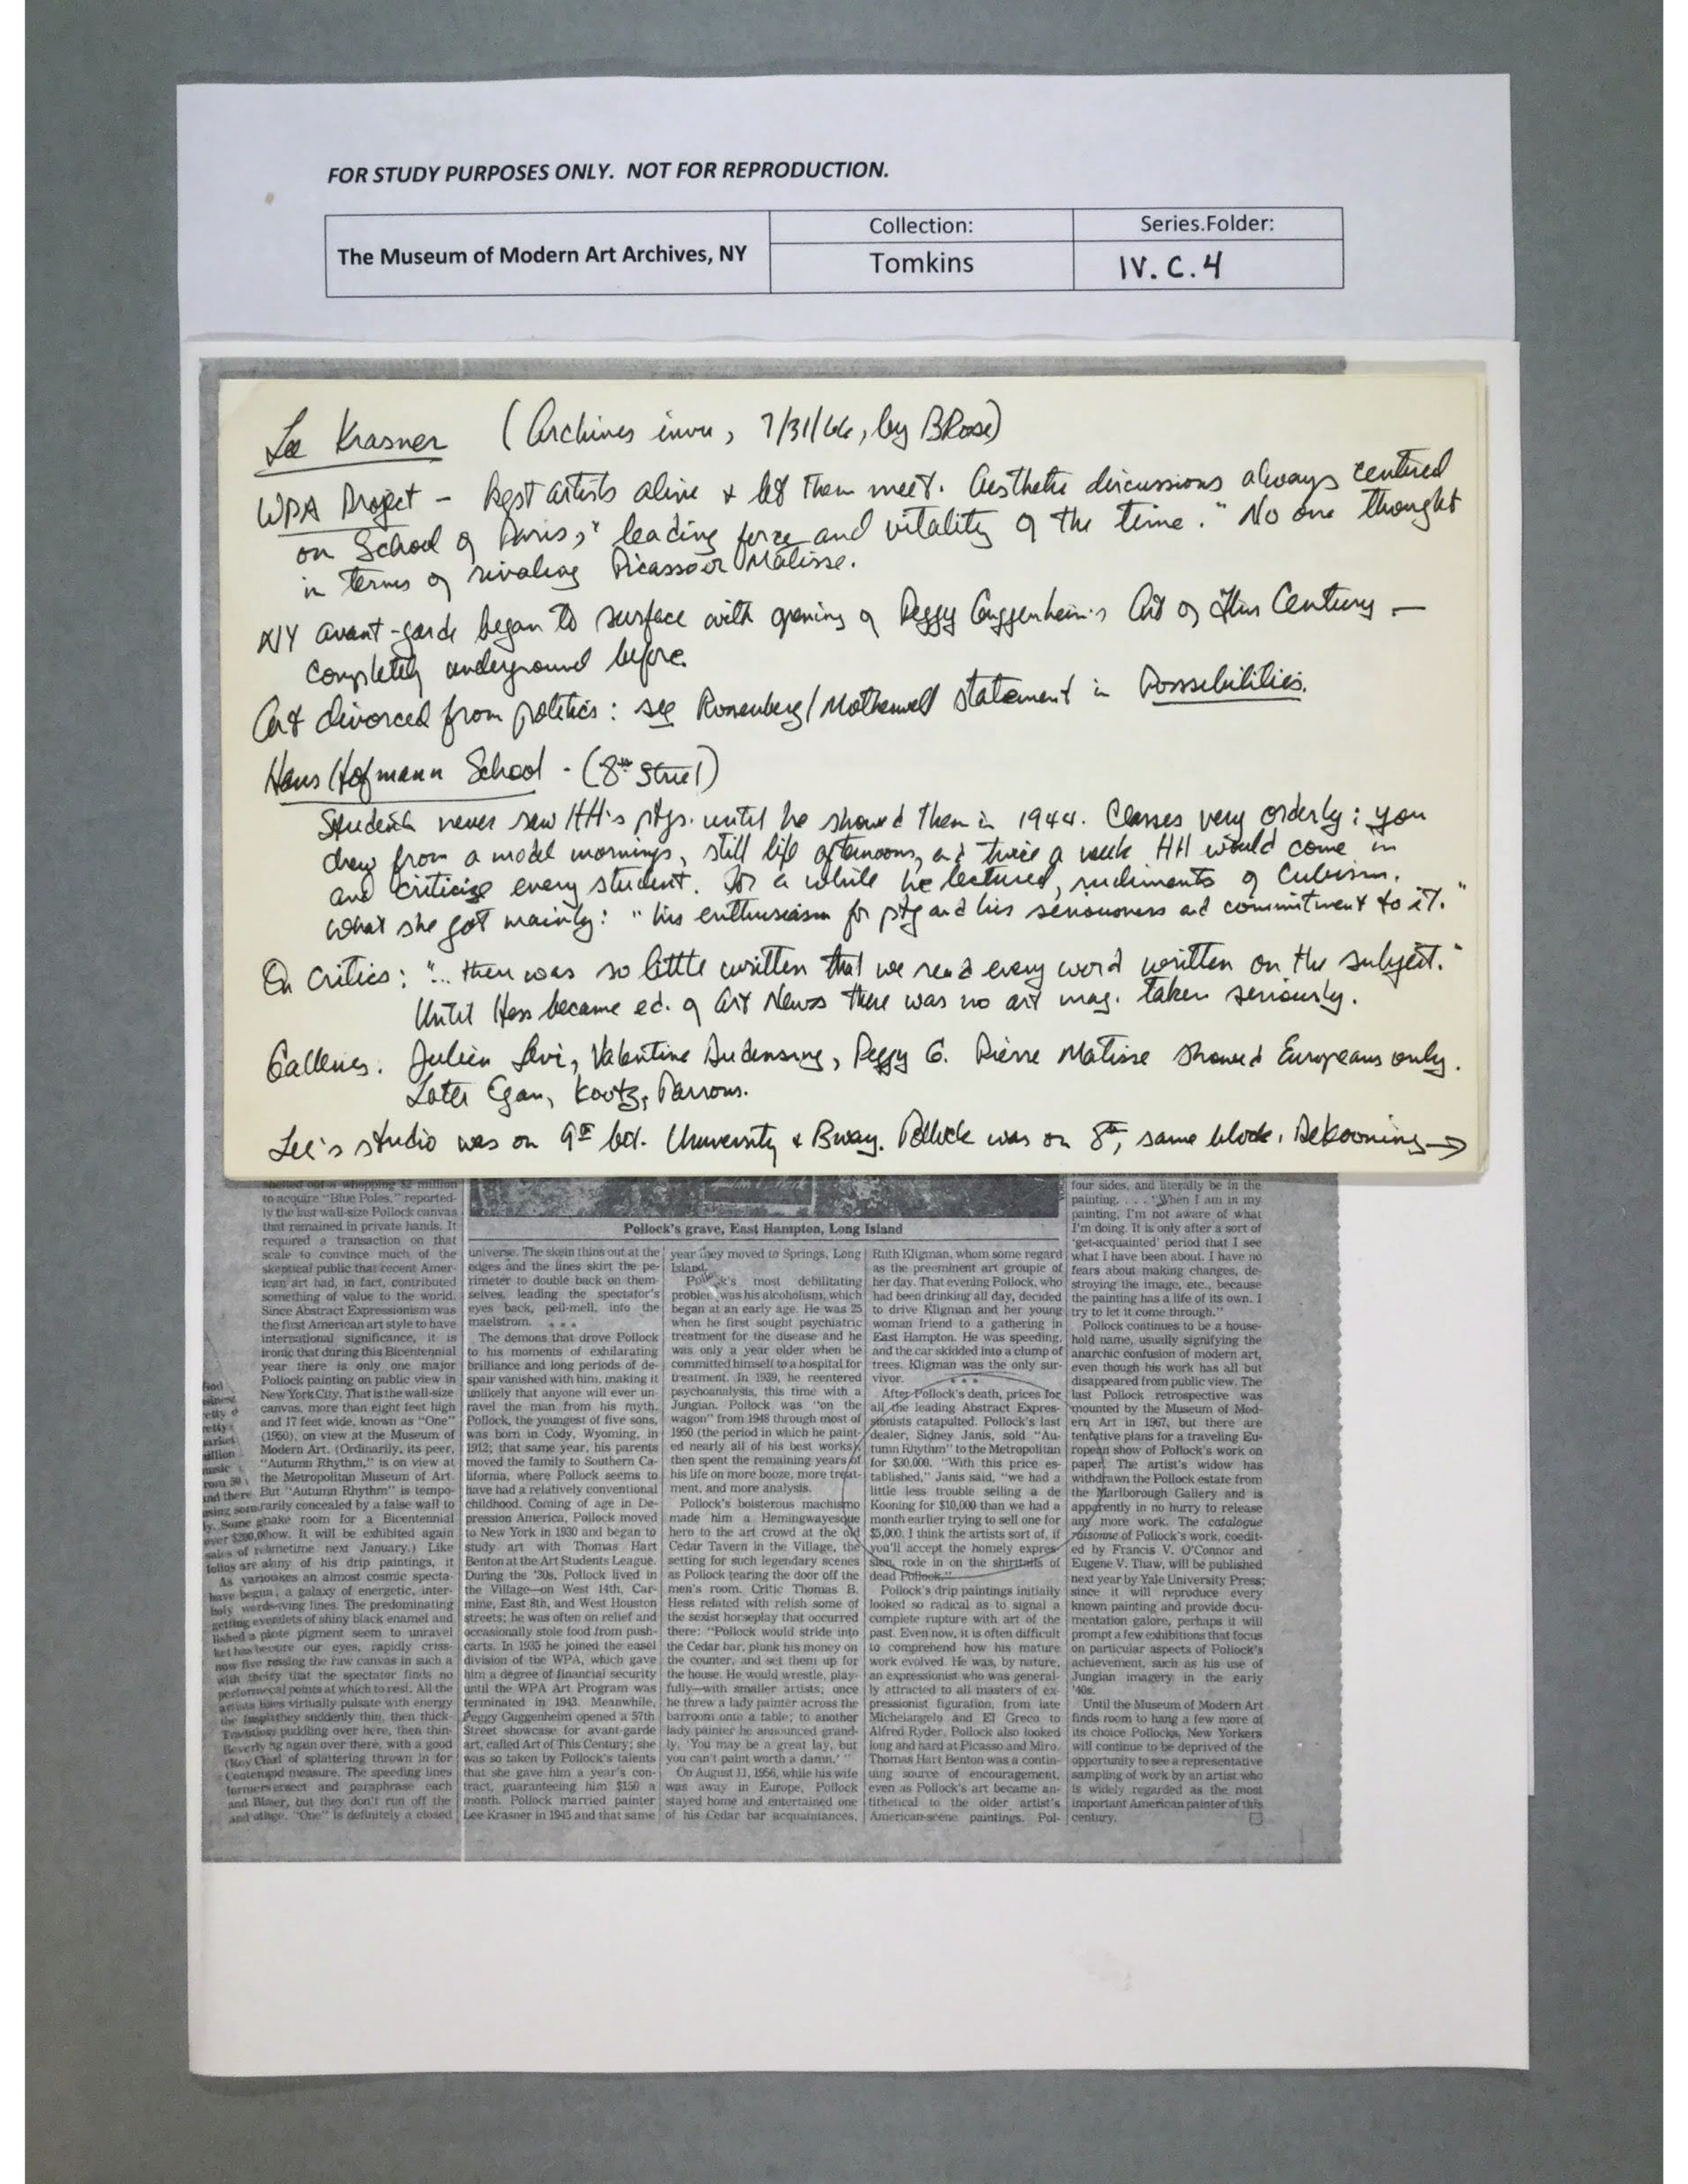 FOR STUDY PURPOSES ONLY. NOT FOR REPRODUCTION.
The Museum of Modern Art Archives, NY
Collection:
Tomkins
Series.Folder:
IV.C.4
Lee Krasner (Archives invu, 7/31/66, by BRose)
WPA Project - kept artists alive & let them meet. Aesthetic discussions always centered
on School of Paris, "leading force and vitality of the time." No one thought
in terms of rivaling Picasso or Matisse.
NY avant-garde began to surface with opening of Peggy Guggenheim's Art of This Century —
completely underground before.
Art divorced from politics: see Rosenberg/Motherwell statement in Possibilities.
Hans Hofmann School - (8th Street)
Students never saw HH's ptgs. until he showed them in 1944. Classes very orderly: you
drew from a model mornings, still life afternoons, and twice a week HH would come in
and criticize every student. For a while he lectured, rudiments of Cubism.
What she got mainly: "his enthusiasm for ptg and his seriousness and commitment to it."
On Critics: "... there was so little written that we read every word written on the subject."
Until Hess became ed. of Art News there was no art mag. taken seriously.
Galleries. Julien Levi, Valentine Dudensing, Peggy G. Pierre Matisse showed Europeans only.
Later Egan, Kootz, Parsons.
Lee's studio was on 9th bet. University & Bway. Pollock was on 8th, same block. DeKooning →
shelled out a whopping $2 million
to acquire "Blue Poles," reported-
ly the last wall-size Pollock canvas
that remained in private hands. It
required a transaction on that
scale to convince much of the
skeptical public that recent Amer-
ican art had, in fact, contributed
something of value to the world.
Since Abstract Expressionism was
the first American art style to have
international significance, it is
ironic that during this Bicentennial
year there is only one major
Pollock painting on public view in
New York City. That is the wall-size
canvas, more than eight feet high
and 17 feet wide, known as "One"
(1950), on view at the Museum of
Modern Art. (Ordinarily, its peer,
"Autumn Rhythm," is on view at
the Metropolitan Museum of Art.
But "Autumn Rhythm" is tempo-
rarily concealed by a false wall to
make room for a Bicentennial
show. It will be exhibited again
sometime next January.) Like
many of his drip paintings, it
evokes an almost cosmic specta-
cle, a galaxy of energetic, inter-
weaving lines. The predominating
rivulets of shiny black enamel and
seem to unravel
before our eyes, rapidly criss-
crossing the raw canvas in such a
way that the spectator finds no
focal points at which to rest. All the
lines virtually pulsate with energy
they suddenly thin, then thick-
en, puddling over here, then thin-
ning again over there, with a good
deal of splattering thrown in for
good measure. The speeding lines
intersect and paraphrase each
other, but they don't run off the
edge. "One" is definitely a closed
Pollock's grave, East Hampton, Long Island
universe. The skein thins out at the
edges and the lines skirt the pe-
rimeter to double back on them-
selves, leading the spectator's
eyes back, pell-mell, into the
maelstrom. • • •
The demons that drove Pollock
to his moments of exhilarating
brilliance and long periods of de-
spair vanished with him, making it
unlikely that anyone will ever un-
ravel the man from his myth.
Pollock, the youngest of five sons,
was born in Cody, Wyoming, in
1912; that same year, his parents
moved the family to Southern Ca-
lifornia, where Pollock seems to
have had a relatively conventional
childhood. Coming of age in De-
pression America, Pollock moved
to New York in 1930 and began to
study art with Thomas Hart
Benton at the Art Students League.
During the '30s, Pollock lived in
the Village—on West 14th, Car-
mine, East 8th, and West Houston
streets; he was often on relief and
occasionally stole food from push-
carts. In 1935 he joined the easel
division of the WPA, which gave
him a degree of financial security
until the WPA Art Program was
terminated in 1943. Meanwhile,
Peggy Guggenheim opened a 57th
Street showcase for avant-garde
art, called Art of This Century; she
was so taken by Pollock's talents
that she gave him a year's con-
tract, guaranteeing him $150 a
month. Pollock married painter
Lee Krasner in 1945 and that same
year they moved to Springs, Long
Island.
Pollock's most debilitating
problem was his alcoholism, which
began at an early age. He was 25
when he first sought psychiatric
treatment for the disease and he
was only a year older when he
committed himself to a hospital for
treatment. In 1939, he reentered
psychoanalysis, this time with a
Jungian. Pollock was "on the
wagon" from 1948 through most of
1950 (the period in which he paint-
ed nearly all of his best works),
then spent the remaining years of
his life on more booze, more treat-
ment, and more analysis.
Pollock's boisterous machismo
made him a Hemingwayesque
hero to the art crowd at the old
Cedar Tavern in the Village, the
setting for such legendary scenes
as Pollock tearing the door off the
men's room. Critic Thomas B.
Hess related with relish some of
the sexist horseplay that occurred
there: "Pollock would stride into
the Cedar bar, plunk his money on
the counter, and set them up for
the house. He would wrestle, play-
fully—with smaller artists; once
he threw a lady painter across the
barroom onto a table; to another
lady painter he announced grand-
ly, 'You may be a great lay, but
you can't paint worth a damn.' "
On August 11, 1956, while his wife
was away in Europe, Pollock
stayed home and entertained one
of his Cedar bar acquaintances,
Ruth Kligman, whom some regard
as the preeminent art groupie of
her day. That evening Pollock, who
had been drinking all day, decided
to drive Kligman and her young
woman friend to a gathering in
East Hampton. He was speeding,
and the car skidded into a clump of
trees. Kligman was the only sur-
vivor. • • •
After Pollock's death, prices for
all the leading Abstract Expres-
sionists catapulted. Pollock's last
dealer, Sidney Janis, sold "Au-
tumn Rhythm" to the Metropolitan
for $30,000. "With this price es-
tablished," Janis said, "we had a
little less trouble selling a de
Kooning for $10,000 than we had a
month earlier trying to sell one for
$5,000. I think the artists sort of, if
you'll accept the homely expres-
sion, rode in on the shirttails of
dead Pollock."
Pollock's drip paintings initially
looked so radical as to signal a
complete rupture with art of the
past. Even now, it is often difficult
to comprehend how his mature
work evolved. He was, by nature,
an expressionist who was general-
ly attracted to all masters of ex-
pressionist figuration, from late
Michelangelo and El Greco to
Alfred Ryder. Pollock also looked
long and hard at Picasso and Miro.
Thomas Hart Benton was a contin-
uing source of encouragement,
even as Pollock's art became an-
tithetical to the older artist's
American-scene paintings. Pol-
four sides, and literally be in the
painting. . . . "When I am in my
painting, I'm not aware of what
I'm doing. It is only after a sort of
'get-acquainted' period that I see
what I have been about. I have no
fears about making changes, de-
stroying the image, etc., because
the painting has a life of its own. I
try to let it come through."
Pollock continues to be a house-
hold name, usually signifying the
anarchic confusion of modern art,
even though his work has all but
disappeared from public view. The
last Pollock retrospective was
mounted by the Museum of Mod-
ern Art in 1967, but there are
tentative plans for a traveling Eu-
ropean show of Pollock's work on
paper. The artist's widow has
withdrawn the Pollock estate from
the Marlborough Gallery and is
apparently in no hurry to release
any more work. The catalogue
raisonne of Pollock's work, coedit-
ed by Francis V. O'Connor and
Eugene V. Thaw, will be published
next year by Yale University Press;
since it will reproduce every
known painting and provide docu-
mentation galore, perhaps it will
prompt a few exhibitions that focus
on particular aspects of Pollock's
achievement, such as his use of
Jungian imagery in the early
'40s.
Until the Museum of Modern Art
finds room to hang a few more of
its choice Pollocks, New Yorkers
will continue to be deprived of the
opportunity to see a representative
sampling of work by an artist who
is widely regarded as the most
important American painter of this
century.